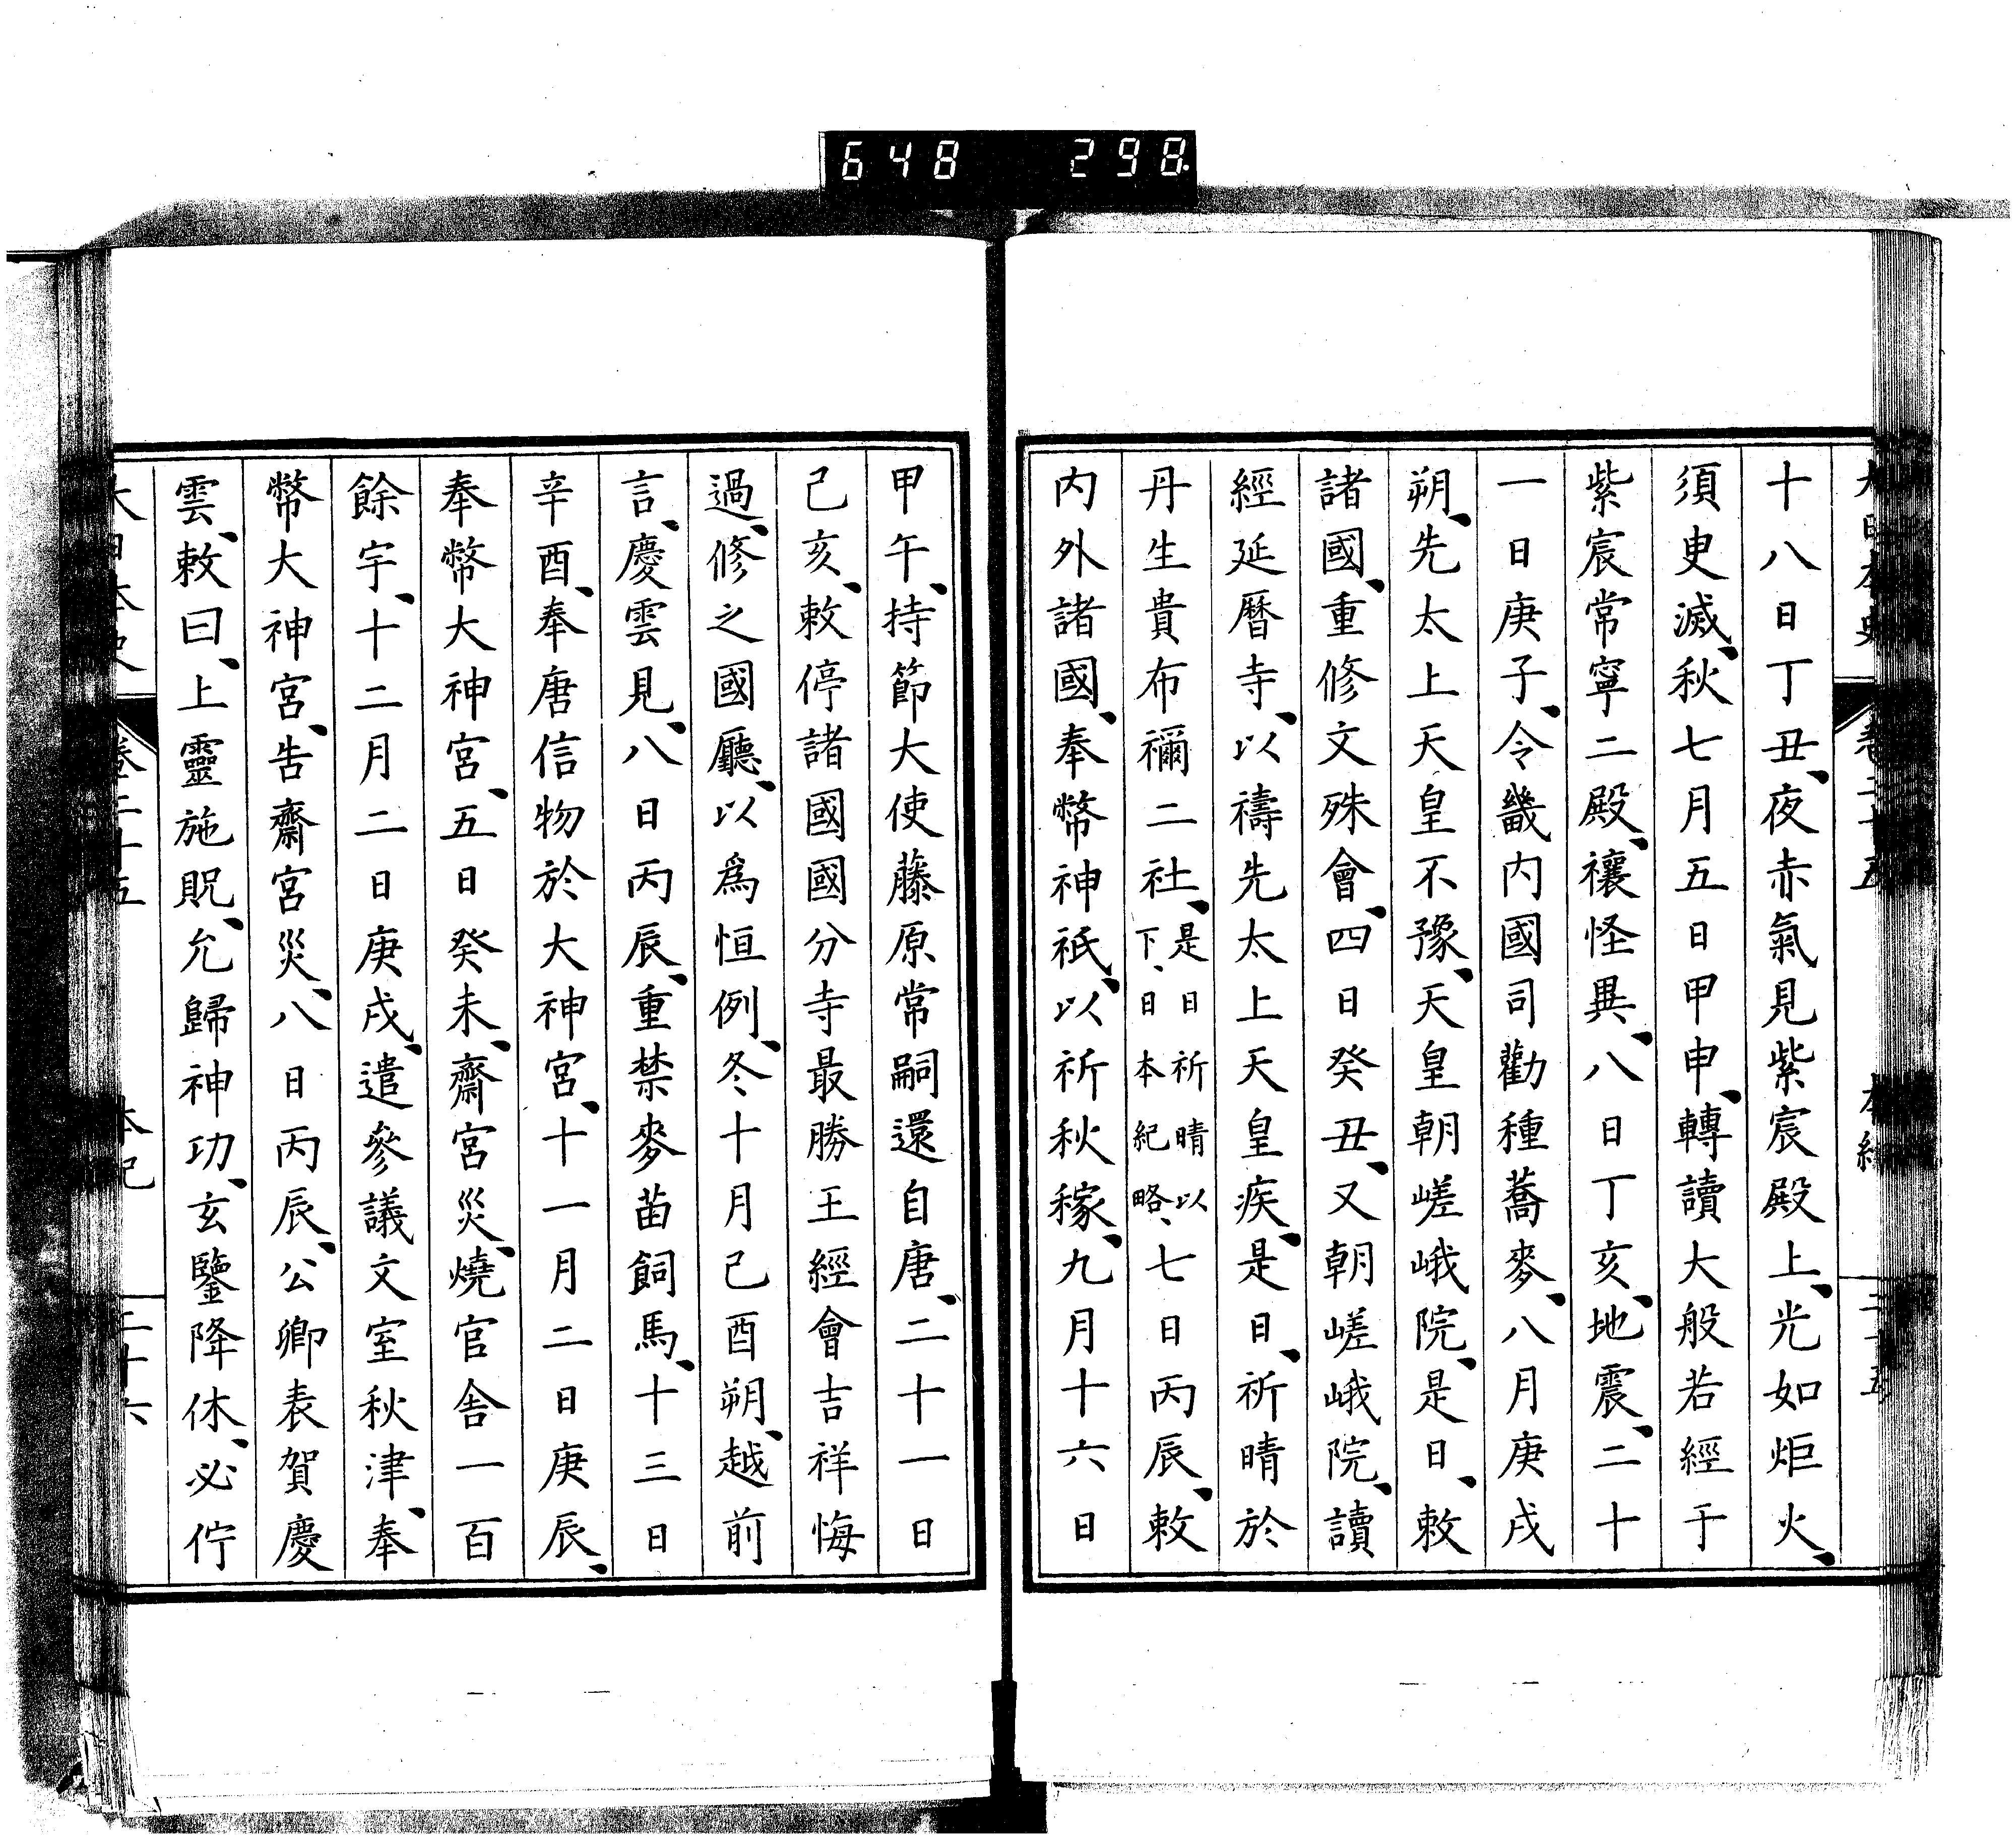 648 298
十八日丁丑、夜赤氣見紫宸殿上、光如炬火、
須臾滅、秋七月五日甲申、轉讀大般若經于
紫宸常寧二殿、禳怪異、八日丁亥、地震、二十
一日庚子、令畿内國司勸種蕎麥、八月庚戌
朔、先太上天皇不豫、天皇朝嵯峨院、是日、敕
諸國、重修文殊會、四日癸丑、又朝嵯峨院、讀
經延曆寺、以禱先太上天皇疾、是日、祈晴於
丹生貴布禰二社、是日祈晴以下、日本紀略、七日丙辰、敕
内外諸國、奉幣神祇、以祈秋稼、九月十六日
甲午、持節大使藤原常嗣還自唐、二十一日
己亥、敕停諸國國分寺最勝王經會吉祥悔
過、修之國廳、以爲恒例、冬十月己酉朔、越前
言、慶雲見、八日丙辰、重禁麥苗飼馬、十三日
辛酉、奉唐信物於大神宮、十一月二日庚辰、
奉幣大神宮、五日癸未、齋宮災、燒官舍一百
餘宇、十二月二日庚戌、遣參議文室秋津、奉
幣大神宮、告齋宮災、八日丙辰、公卿表賀慶
雲、敕曰、上靈施貺、允歸神功、玄鑒降休、必佇